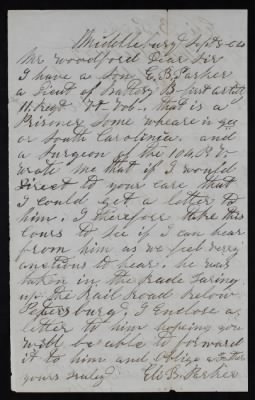 Middleburg Sept 8-64
Mr Woodford Dear Sir
I have a son E. B. Parker
a Lieut of Battery B-first artiler
11. Regt Vt-Vols. that is a
Prisoner some wheare in geo
or South Carolinia. and
a surgeon of the 104.
wrote me that if I would
direct to your care that
I could get a letter to
him. I therefore take this
cours to see if I can hear
from him as we feel verry
anctious to hear. he was
taken in the rade taring
up the Rail Road below
Petersburg. I enclose a
letter to him hoping you
will be able to forward
it to him and Oblige a Father
yours truly
B. Parker